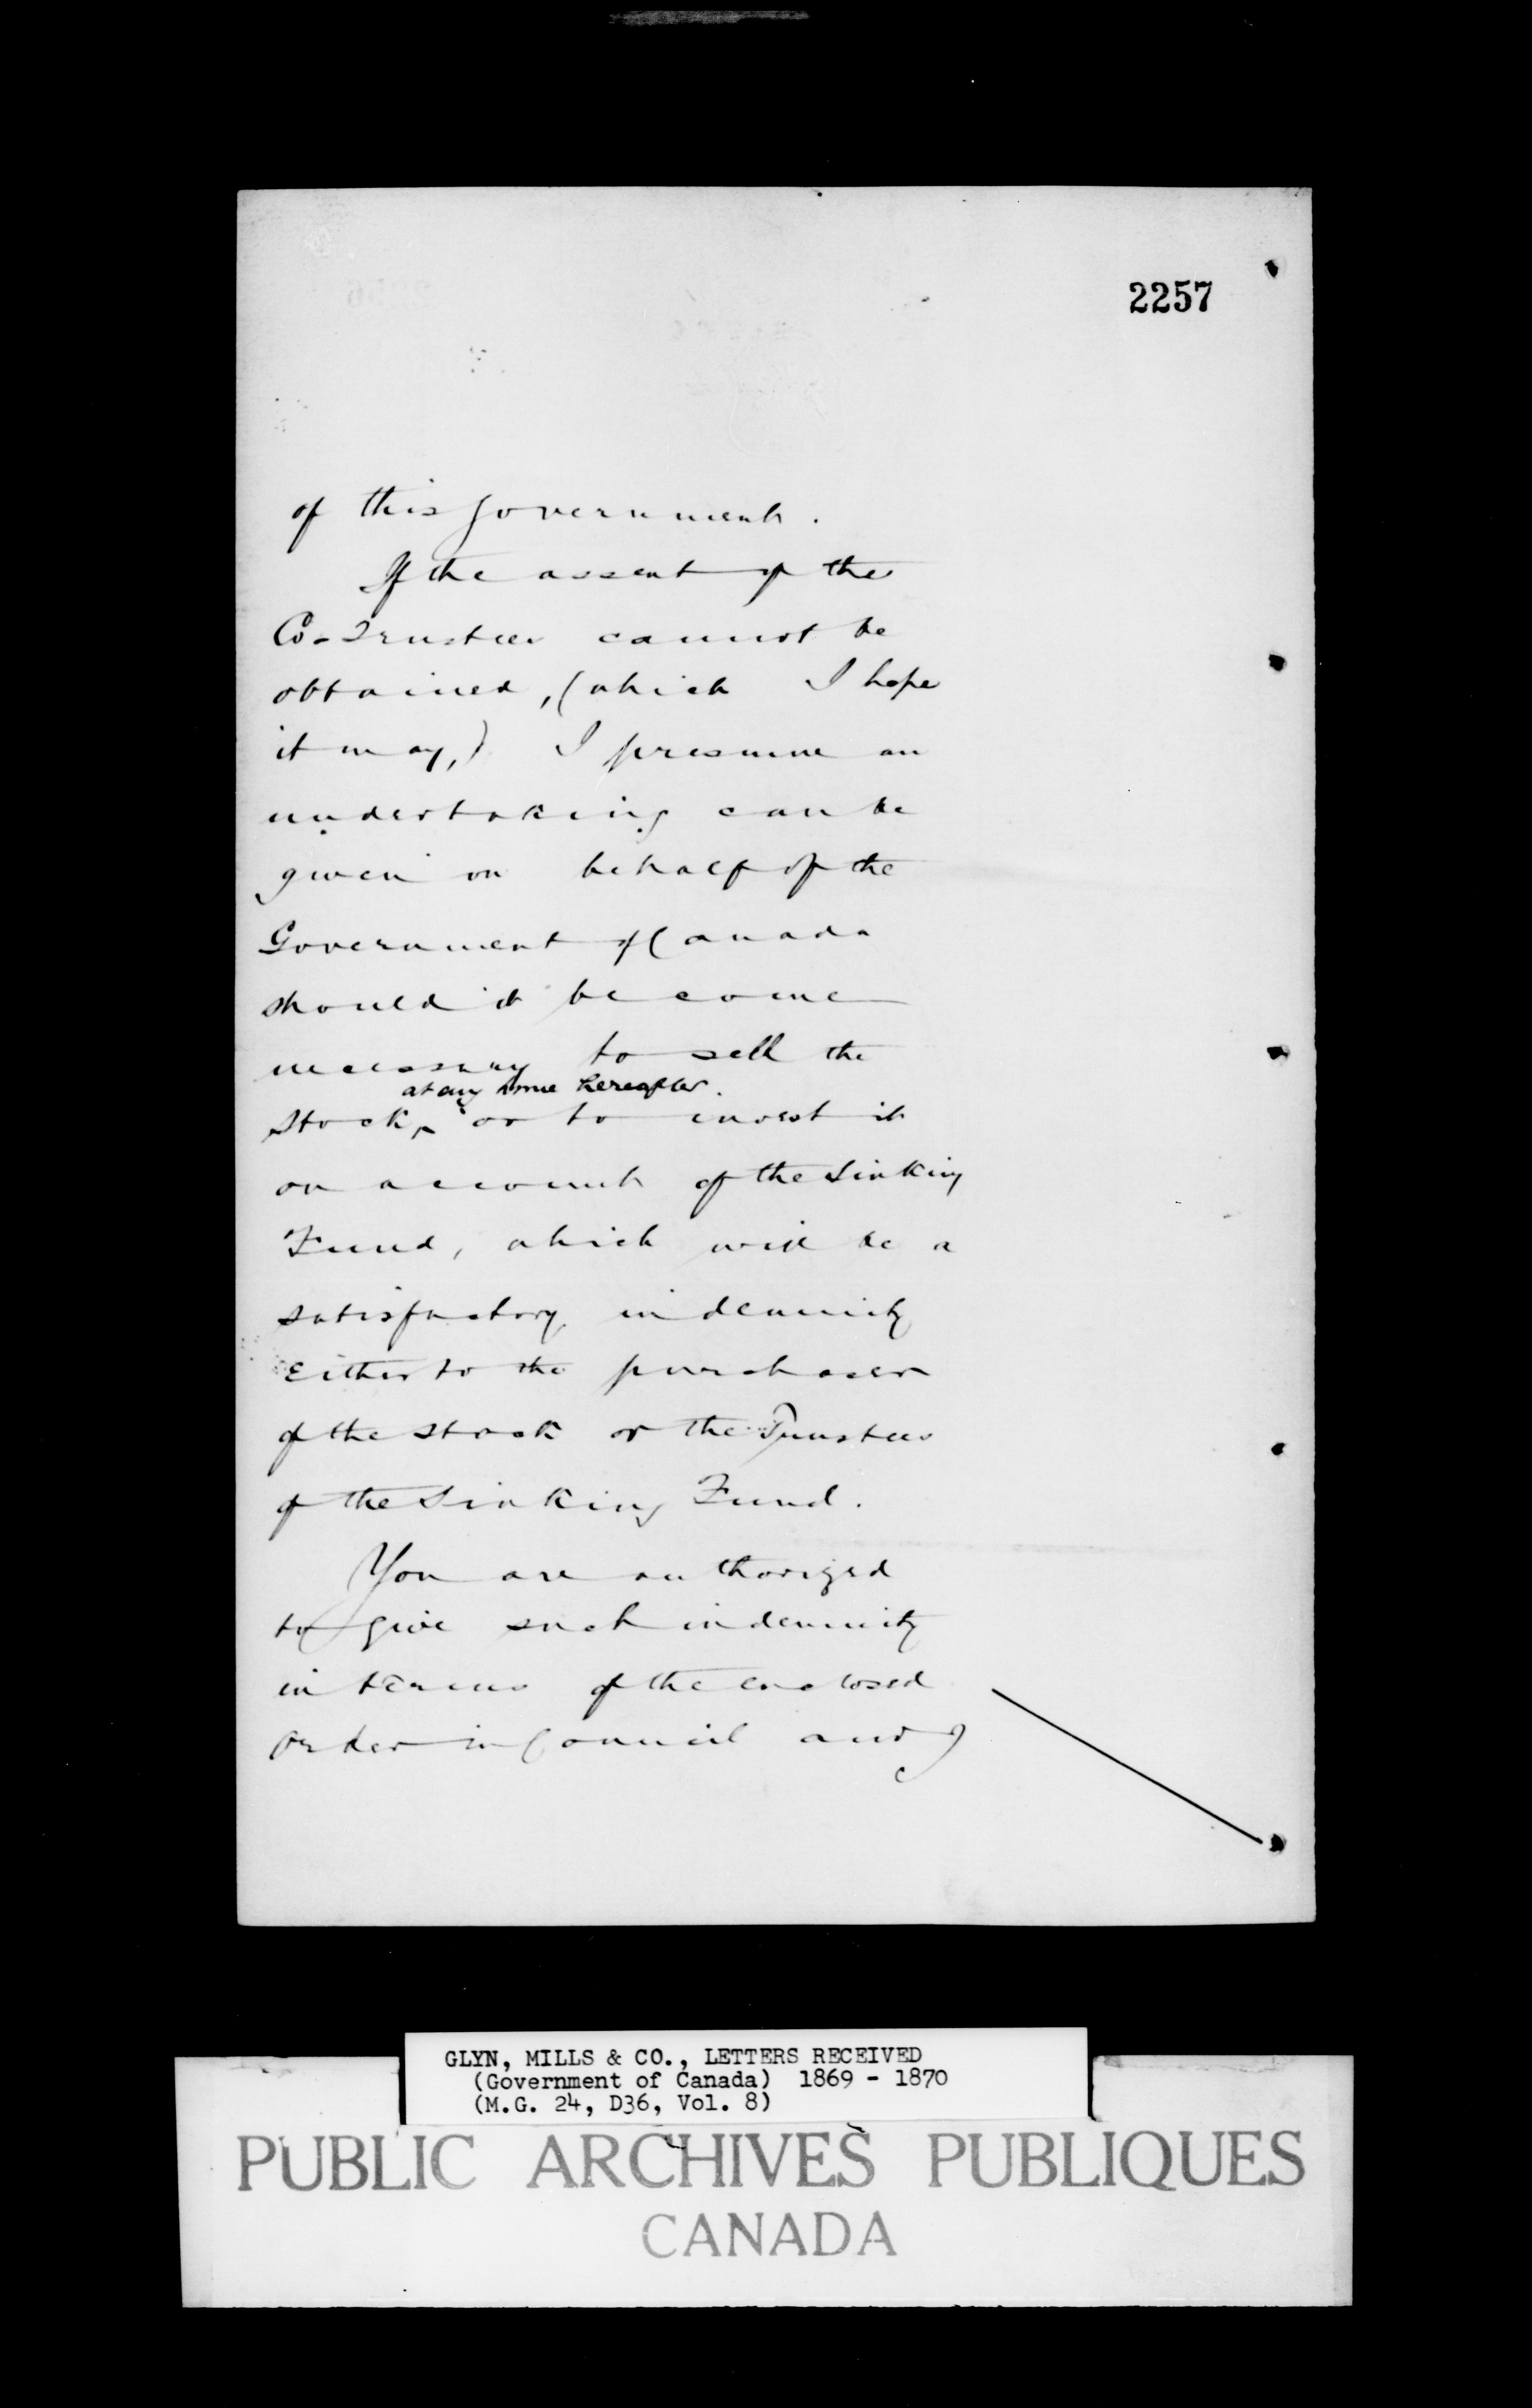 2257
of this Government.
If the assent of the
Co-Trustees cannot be
obtained, (which I hope
it may,) I presume an
undertaking can be
given on behalf of the
Government of Canada
should it become
necessary to sell the
at any time hereafter.
Stock, ^ or to invest it
on account of the Sinking
Fund, which will be a
satisfactory indemnity
Either to the purchaser
of the Stock or the Trustees
of the Sinking Fund.
You are authorized
to give such indemnity
in terms of the enclosed
Order in Council and
GLYN, MILLS & CO., LETTERS RECEIVED
(Government of Canada) 1869 - 1870
(M.G. 24, D36, Vol. 8)
PUBLIC ARCHIVES PUBLIQUES
CANADA